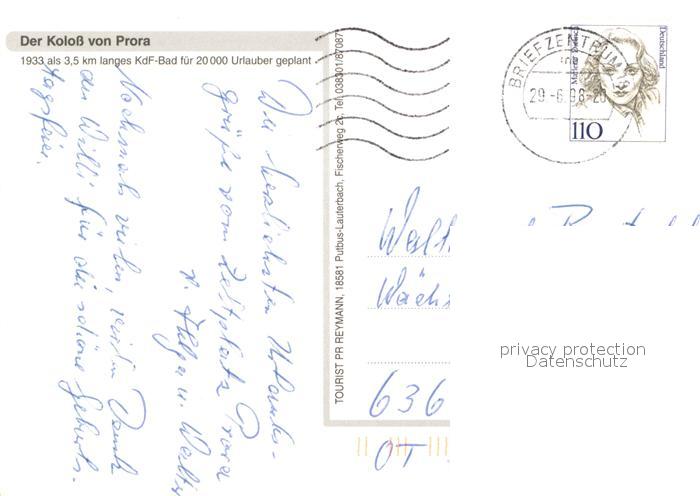 Der Koloß von Prora
1933 als 3,5 km langes KdF-Bad für 20 000 Urlauber geplant
Die herzlichsten Urlaubs-
grüße vom Zeltplatz Prora
v. Helga u. Walter
Nochmals vielen, vielen Dank
an Willi für die schöne Geburts-
tagsfeier.
TOURIST PR REYMANN, 18581 Putbus-Lauterbach, Fischerweg 2c, Tel. 038301/87087
BRIEFZENTRUM
29-6.98-20
Marlene Dietrich
Deutschland
110
Walt
Wächt
636
OT
privacy protection
Datenschutz